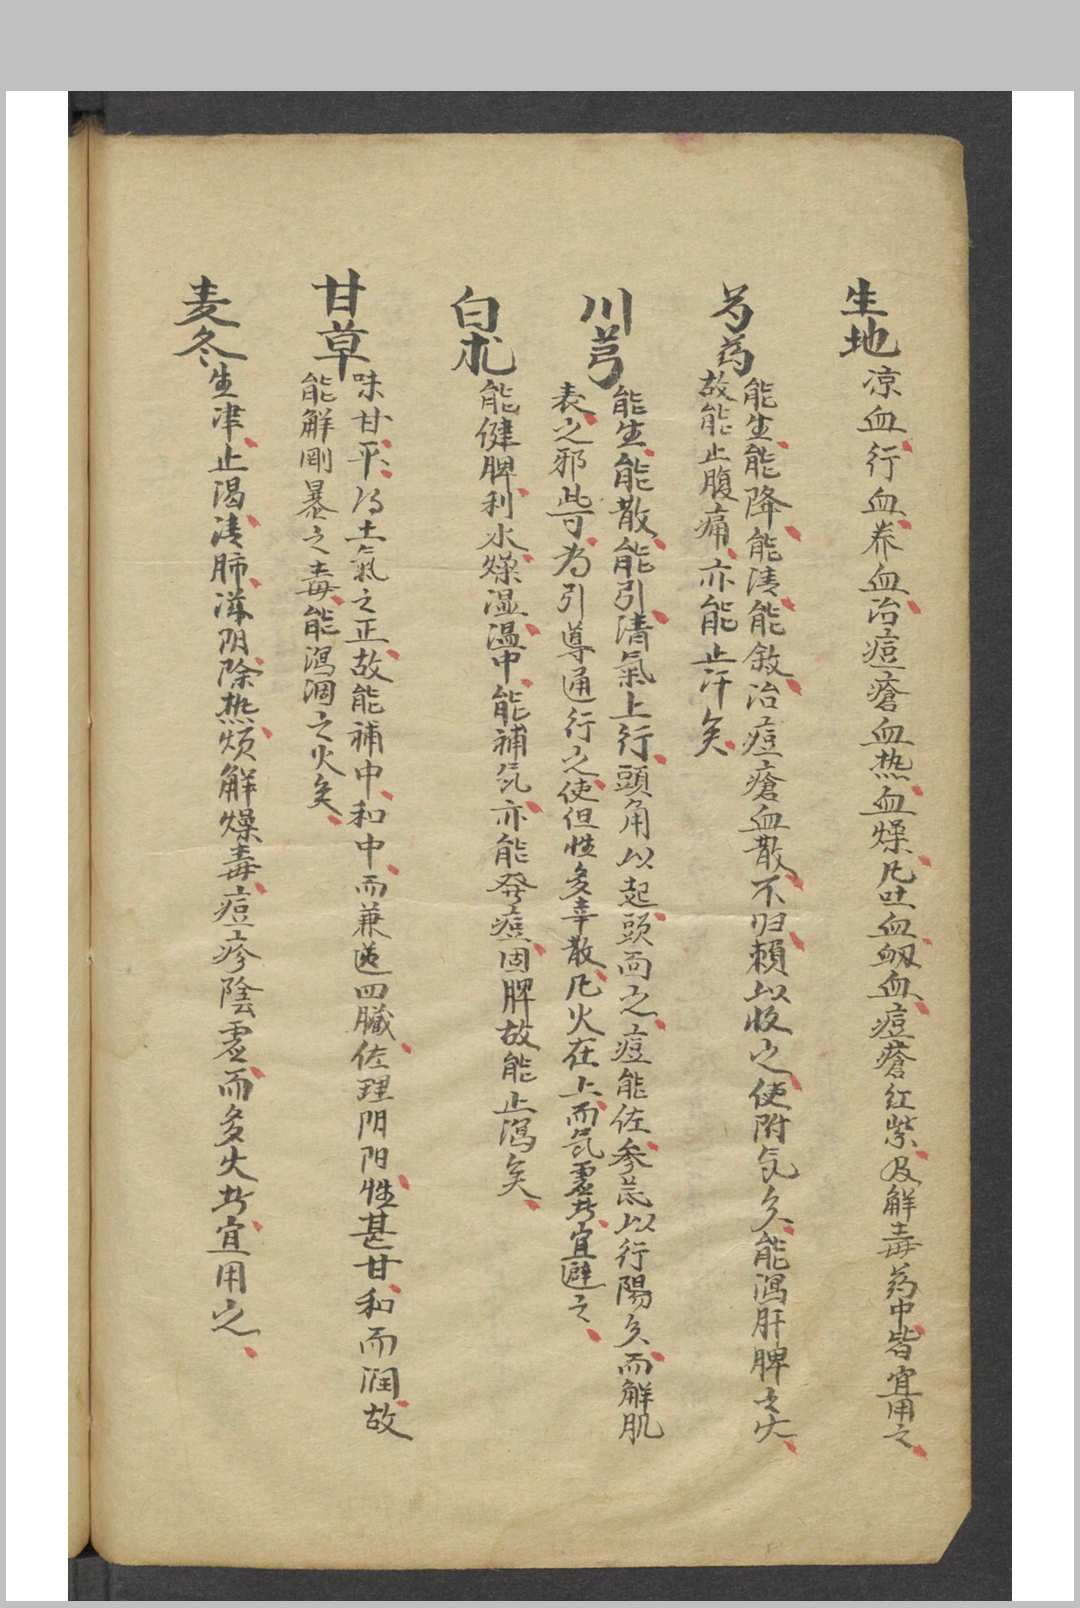 生地 凉血行血养血治痘瘡血热血燥凡吐血衂血痘瘡红紫及解毒药中皆宜用之
芍药 能生能降能清能敛治痘瘡血散不归賴以收之使附气久能瀉肝脾之火
故能止腹痛亦能止汗矣
川芎 能生能散能引清氣上行頭角以起頭面之痘能佐参芪以行陽久而解肌
表之邪些可为引導通行之使但性多辛散凡火在上而氕虚者宜避之
白朮 能健脾利水燥湿温中能補氕亦能发痘固脾故能止瀉矣
甘草 味甘平得土氣之正故能補中和中而兼送四臟佐理阴阳性甚甘和而润故
能解剛暴之毒能瀉涸之火矣
麦冬 生津止渴清肺滋阴除热烦解燥毒痘疹陰虚而多火者宜用之